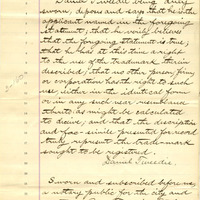 Daniel Tweedie being duly
sworn, deposes and says that he is the
applicant named in the foregoing
statement; that he verily believes
that the foregoing statement is true;
that he has at this time a right
to the use of the trademark therein
described; that no other person, firm
or corporation has the right to such
use, either in the identical form
or in any such near resemblance
thereto as might be calculated
to deceive; and that the description
and fac-simile presented for record
truly represent the trade-mark
sought to be registered.
Daniel Tweedie.
Sworn and subscribed before me
a notary public for the city and